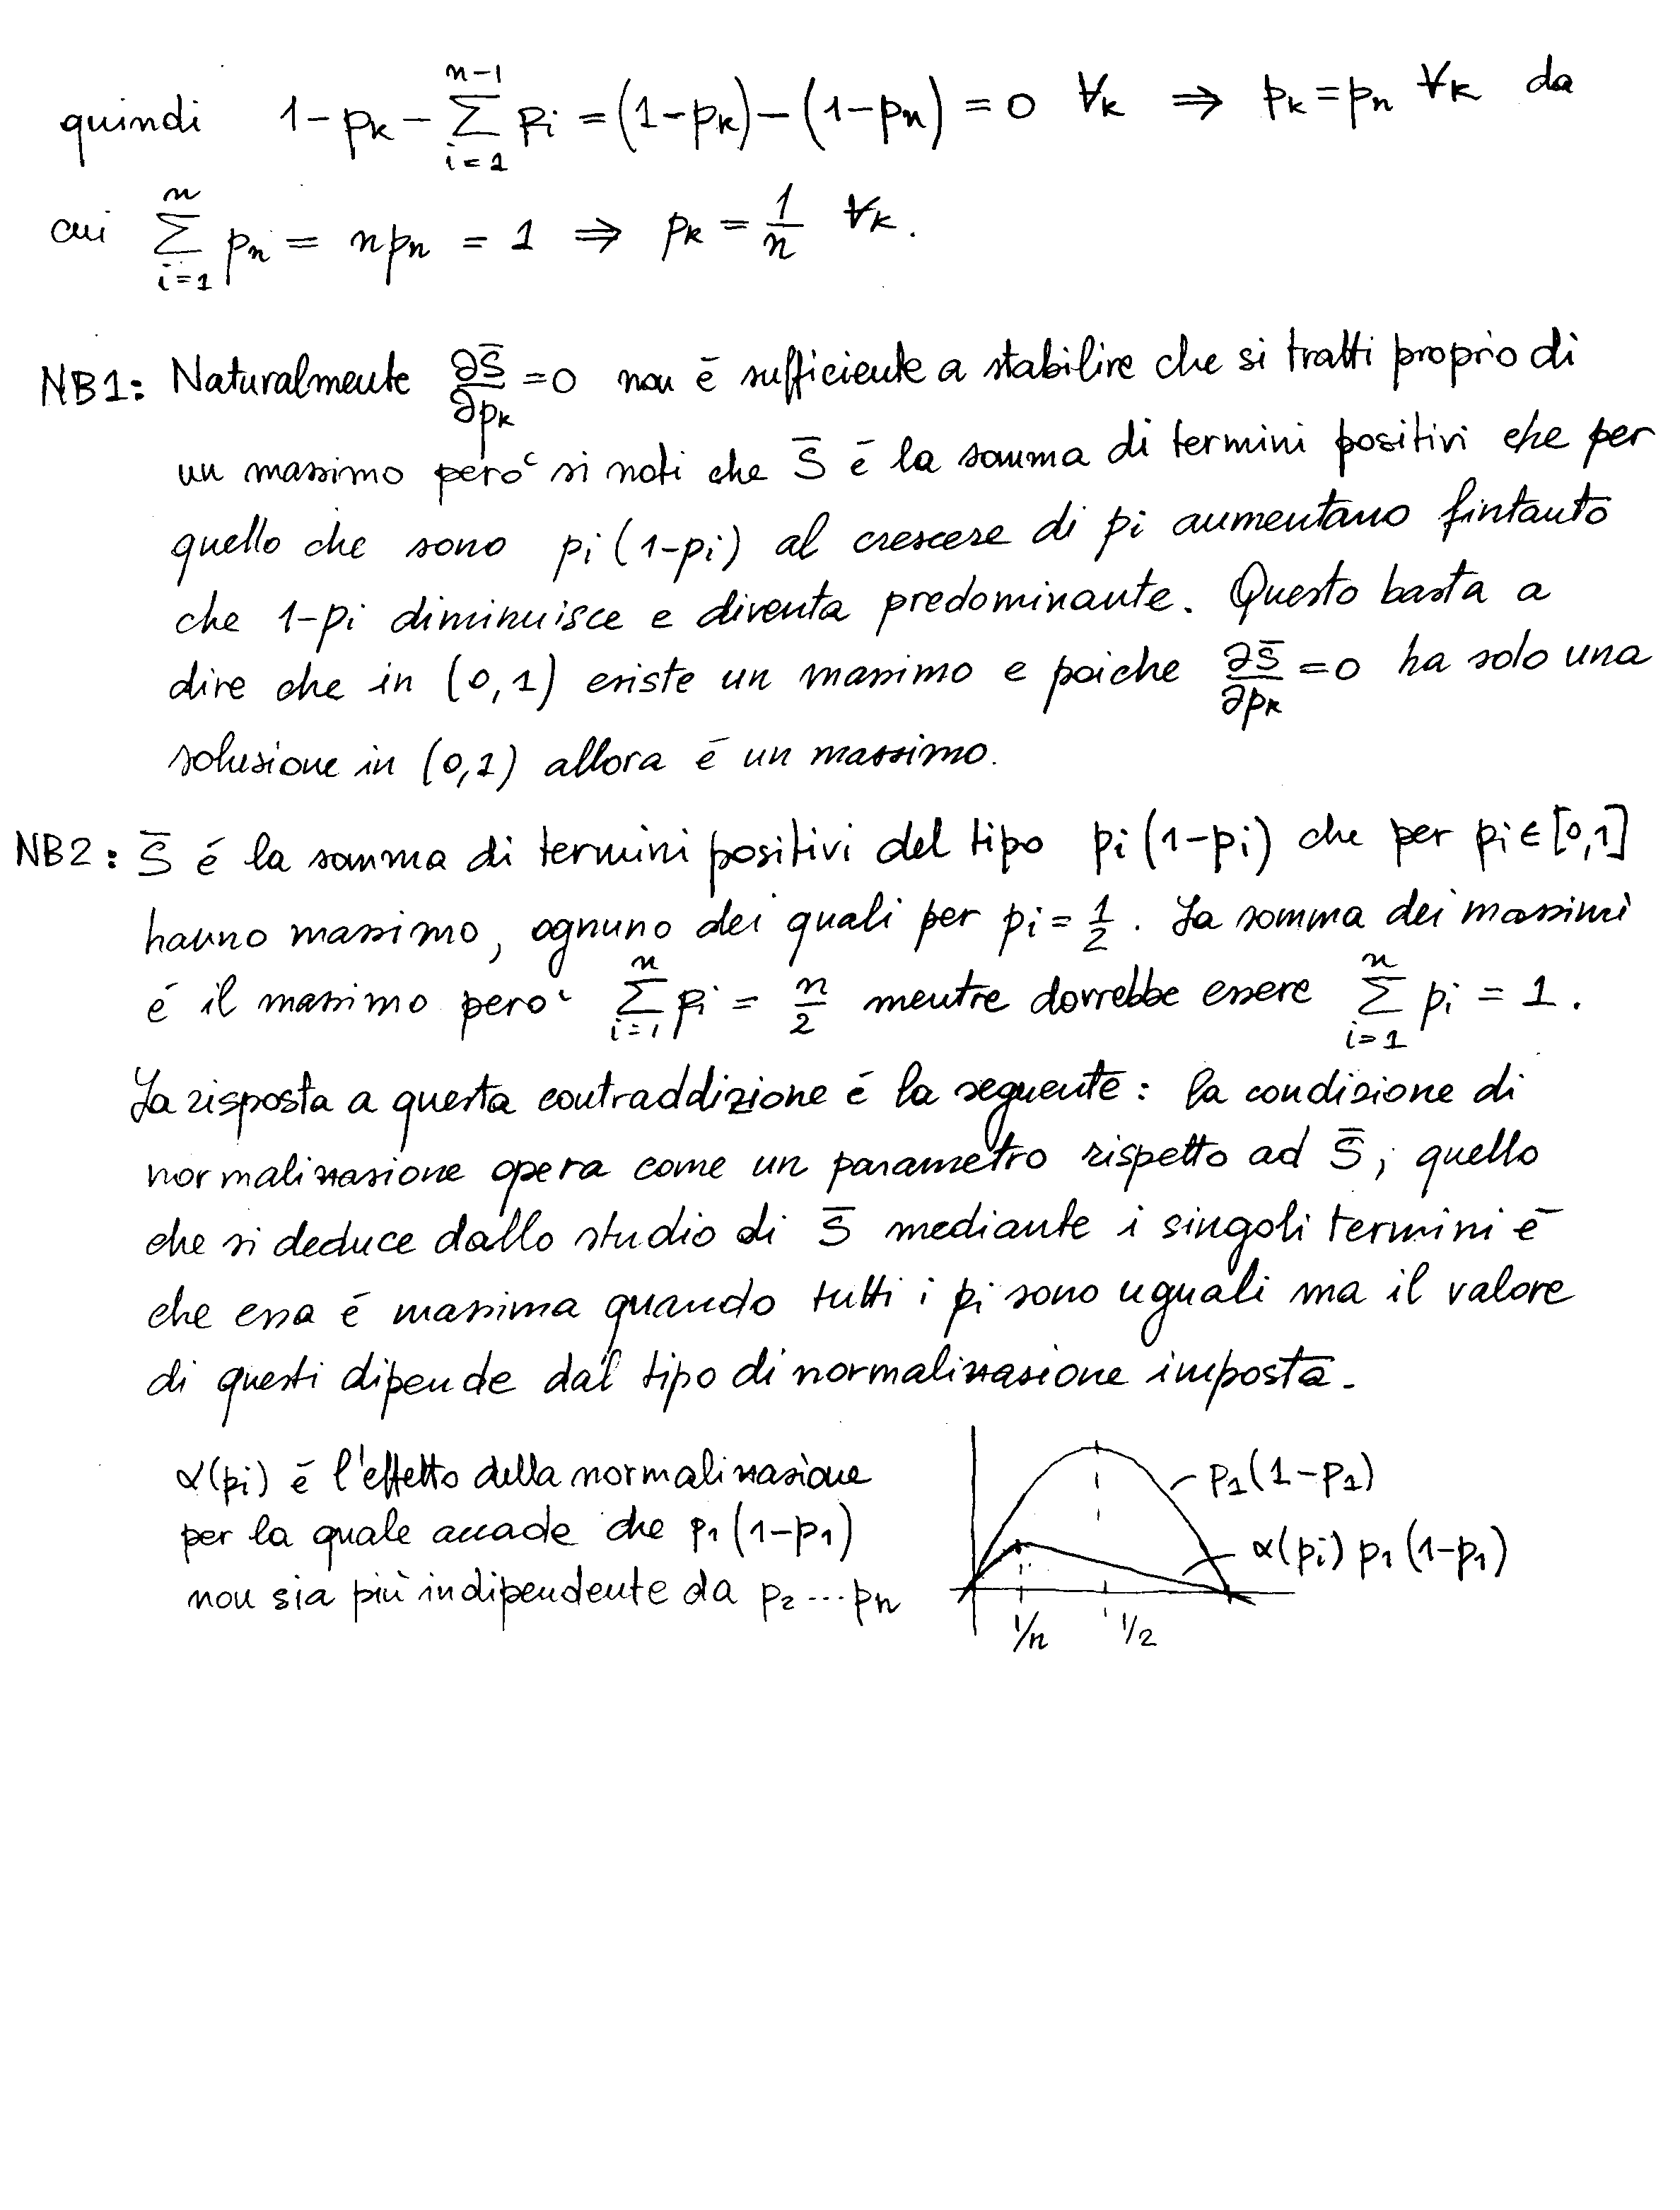 quindi 1-pₖ - ∑_{i=1}^{n-1} pᵢ = (1-pₖ) - (1-pₙ) = 0 ∀k ⇒ pₖ = pₙ ∀k da
cui ∑_{i=1}^{n} pₙ = npₙ = 1 ⇒ pₖ = 1/n ∀k.
NB1: Naturalmente ∂S̄/∂pₖ = 0 non é sufficiente a stabilire che si tratti proprio di
un massimo però si noti che S̄ é la somma di termini positivi che per
quello che sono pi(1-pi) al crescere di pi aumentano fintanto
che 1-pi diminuisce e diventa predominante. Questo basta a
dire che in (0,1) esiste un massimo e poiche ∂S̄/∂pₖ = 0 ha solo una
soluzione in (0,1) allora é un massimo.
NB2: S̄ é la somma di termini positivi del tipo pi(1-pi) che per pi∈[0,1]
hanno massimo, ognuno dei quali per pi = 1/2. La somma dei massimi
é il massimo però ∑_{i=1}^{n} pi = n/2 mentre dovrebbe essere ∑_{i=1}^{n} pi = 1.
La risposta a questa contraddizione é la seguente: la condizione di
normalizzazione opera come un parametro rispetto ad S̄, quello
che si deduce dallo studio di S̄ mediante i singoli termini é
che essa é massima quando tutti i pi sono uguali ma il valore
di questi dipende dal tipo di normalizzazione imposta.
α(pi) é l'effetto della normalizzazione
per la quale accade che p₁(1-p₁)
non sia più indipendente da p₂...pₙ
p₁(1-p₁)
α(pi) p₁(1-p₁)
1/n 1/2